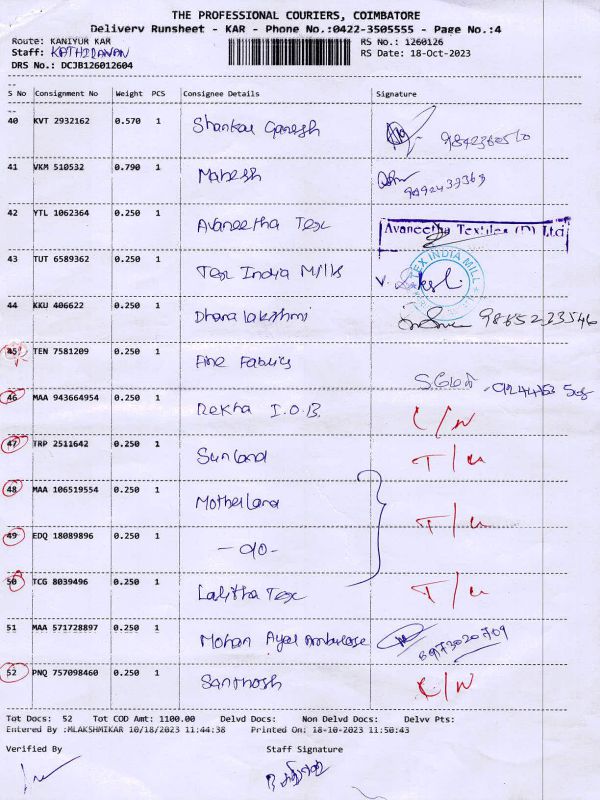 THE PROFESSIONAL COURIERS, COIMBATORE
Delivery Runsheet - KAR - Phone No.:0422-3505555 - Page No.:4
Route: KANIYUR KAR RS No.: 1260126
Staff: KATHIRAVAN RS Date: 18-Oct-2023
DRS No.: DCJB126012604
S No Consignment No Weight PCS Consignee Details Signature
40 KVT 2932162 0.570 1 Shankar Ganesh
41 VKM 510532 0.790 1 Mahesh
42 YTL 1062364 0.250 1 Avaneetha Tex Avaneetha Textiles (P) Ltd
43 TUT 6589362 0.250 1 Tex India Mills TEX INDIA MILL
44 KKU 406622 0.250 1 Dhanalakshmi 9865233546
45 TEN 7581209 0.250 1 Fine Fabrics
46 MAA 943664954 0.250 1 Rekha I.O.B C/N
47 TRP 2511642 0.250 1 Sunland T/U
48 MAA 106519554 0.250 1 Motherland T/U
49 EDQ 18089896 0.250 1 -do-
50 TCG 8039496 0.250 1 Lalitha Tex T/U
51 MAA 571728897 0.250 1 Mohan
52 PNQ 757098460 0.250 1 Santhosh C/N
Tot Docs: 52 Tot COD Amt: 1100.00 Delvd Docs: Non Delvd Docs: Delvv Pts:
Entered By :MLAKSHMIKAR 10/18/2023 11:44:38 Printed On: 18-10-2023 11:50:43
Verified By Staff Signature